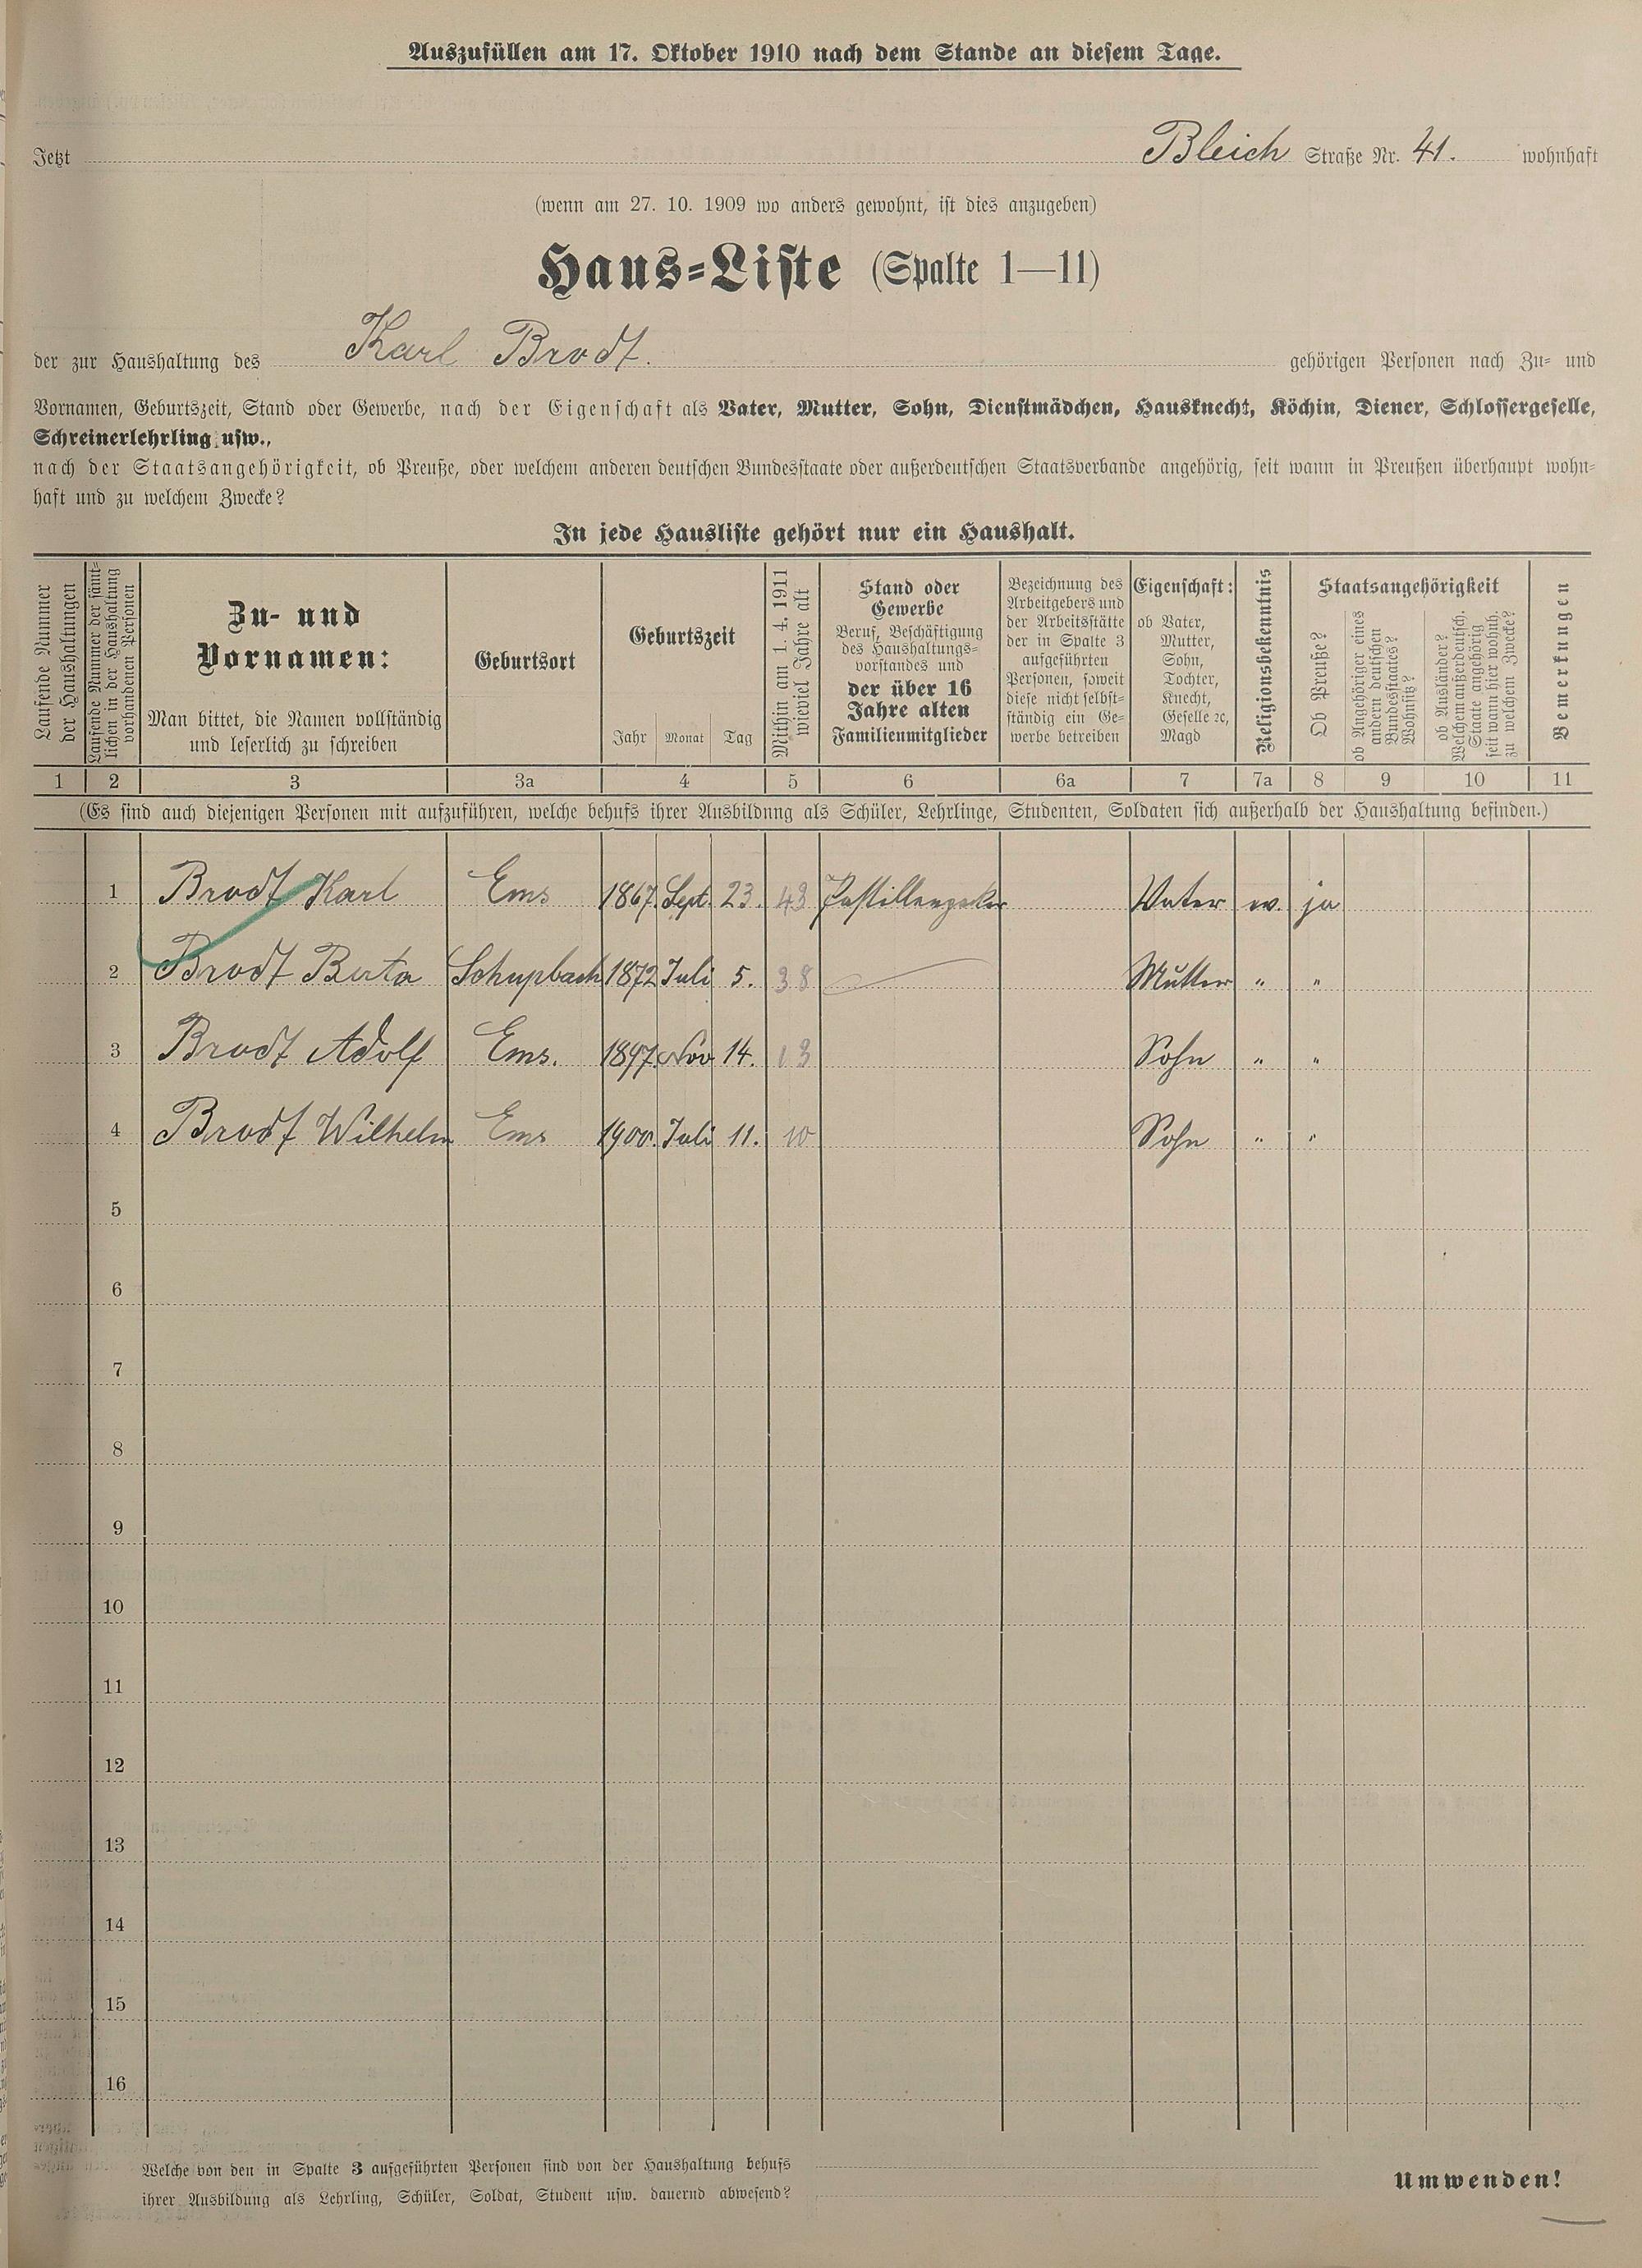 Auszufüllen am 17. Oktober 1910 nach dem Stande an diesem Tage.
Jetzt Bleich Straße Nr. 41. wohnhaft
(wenn am 27. 10. 1909 wo anders gewohnt, ist dies anzugeben)
Haus-Liste (Spalte 1—11)
der zur Haushaltung des Karl Brodt. gehörigen Personen nach Zu- und
Vornamen, Geburtszeit, Stand oder Gewerbe, nach der Eigenschaft als Vater, Mutter, Sohn, Dienstmädchen, Hausknecht, Köchin, Diener, Schlossergeselle,
Schreinerlehrling usw.,
nach der Staatsangehörigkeit, ob Preuße, oder welchem anderen deutschen Bundesstaate oder außerdeutschen Staatsverbande angehörig, seit wann in Preußen überhaupt wohn-
haft und zu welchem Zwecke?
In jede Hausliste gehört nur ein Haushalt.
Laufende Nummer
der Haushaltungen
Laufende Nummer der sämt-
lichen in der Haushaltung
vorhandenen Personen
Zu- und
Vornamen:
Man bittet, die Namen vollständig
und leserlich zu schreiben
Geburtsort
Geburtszeit
Jahr Monat Tag
Mithin am 1. 4. 1911
wieviel Jahre alt
Stand oder
Gewerbe
Beruf, Beschäftigung
des Haushaltungs-
vorstandes und
der über 16
Jahre alten
Familienmitglieder
Bezeichnung des
Arbeitgebers und
der Arbeitsstätte
der in Spalte 3
aufgeführten
Personen, soweit
diese nicht selbst-
ständig ein Ge-
werbe betreiben
Eigenschaft:
ob Vater,
Mutter,
Sohn,
Tochter,
Knecht,
Geselle ꝛc,
Magd
Religionsbekenntnis
Staatsangehörigkeit
Ob Preuße?
ob Angehöriger eines
andern deutschen
Bundesstaates?
Wohnsitz?
ob Ausländer?
Welchem außerdeutsch.
Staate angehörig
seit wann hier wohnh.
zu welchem Zwecke?
Bemerkungen
1 2 3 3a 4 5 6 6a 7 7a 8 9 10 11
(Es sind auch diejenigen Personen mit aufzuführen, welche behufs ihrer Ausbildung als Schüler, Lehrlinge, Studenten, Soldaten sich außerhalb der Haushaltung befinden.)
1 Brodt Karl Ems 1867. Sept. 23. 43 Vater ev. ja
2 Brodt Berta Schupbach 1872 Juli 5. 38 Mutter " "
3 Brodt Adolf Ems. 1897. Nov 14. 13 Sohn " "
4 Brodt Wilhelm Ems 1900. Juli 11. 10 Sohn " "
5
6
7
8
9
10
11
12
13
14
15
16
Welche von den in Spalte 3 aufgeführten Personen sind von der Haushaltung behufs
ihrer Ausbildung als Lehrling, Schüler, Soldat, Student usw. dauernd abwesend?
Umwenden!